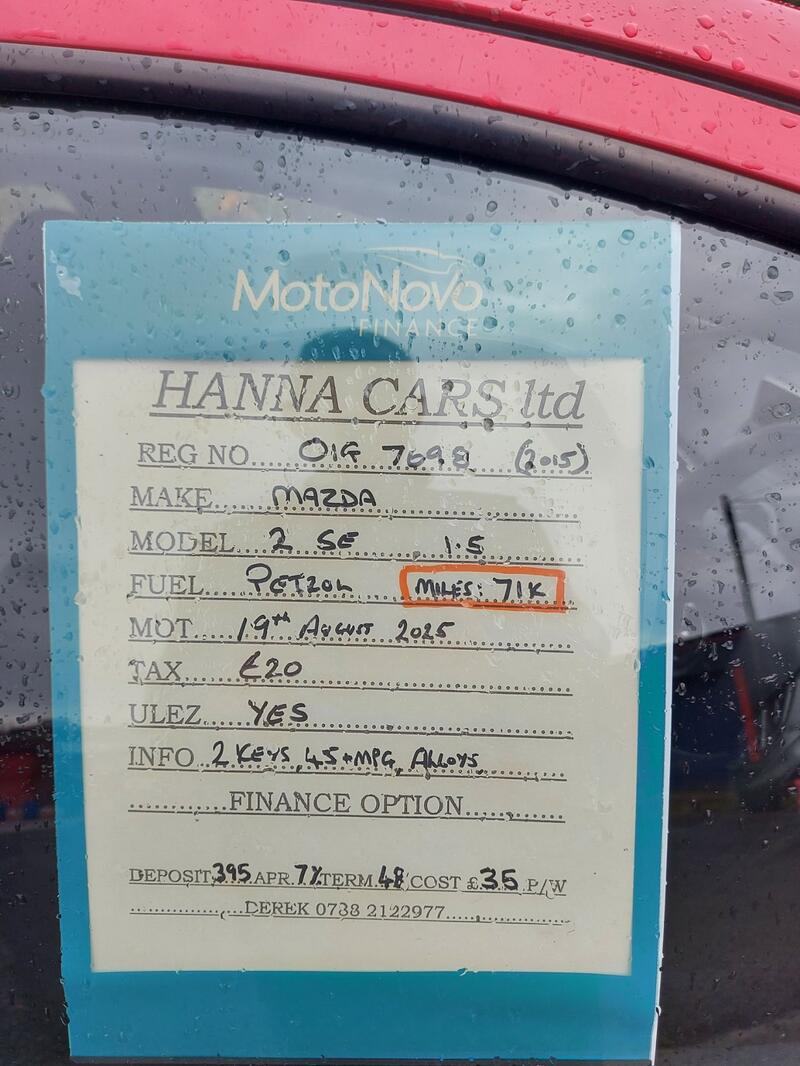 MotoNovo
FINANCE
HANNA CARS ltd
REG NO OIG 7698 (2015)
MAKE MAZDA
MODEL 2 SE 1.5
FUEL PETROL MILES: 71K
MOT 19th AUGUST 2025
TAX £20
ULEZ YES
INFO 2 KEYS, 45+MPG, ALLOYS
FINANCE OPTION
DEPOSIT 395 APR 7% TERM 48 COST £35 P/W
DEREK 0738 2122977